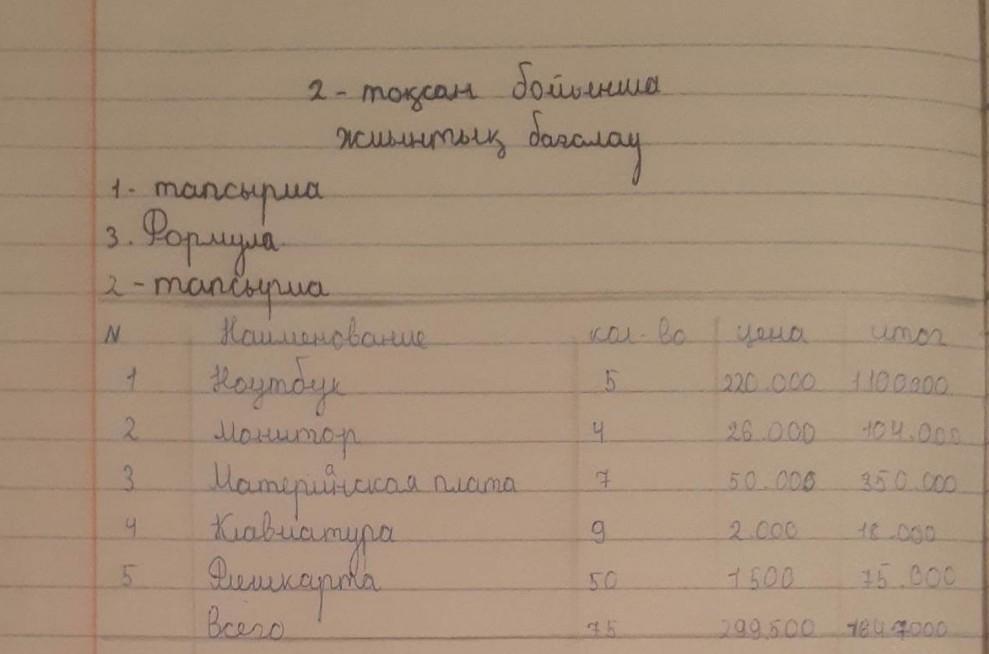 2 - тоқсан бойынша
жиынтық бағалау
1 - тапсырма
3. Формула
2 - тапсырма
N Наименование кол-во цена итог
1 Ноутбук 5 220.000 1100.000
2 Монитор 4 26.000 104.000
3 Материнская плата 7 50.000 350.000
4 Клавиатура 9 2.000 18.000
5 Флешкарта 50 1500 75.000
Всего 75 299.500 1647000